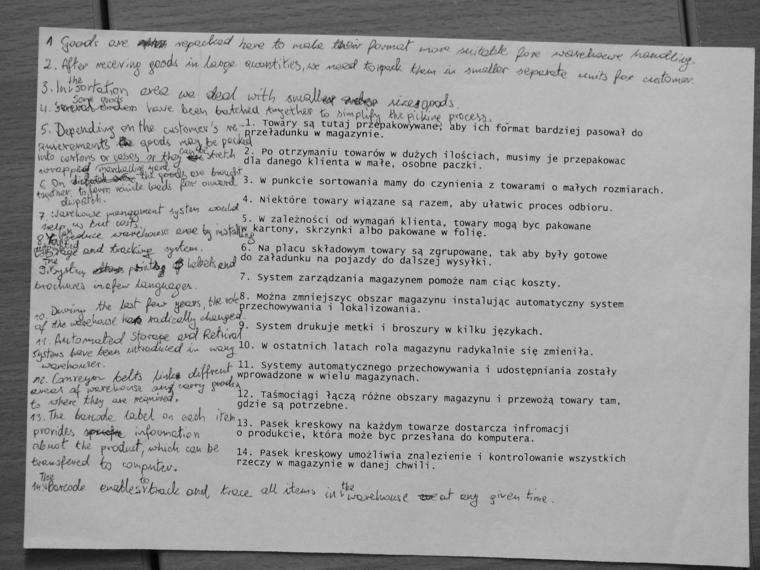 1 Goods are repacked here to make their format more suitable fore warehouwe handling.
2. After receving goods in large quantities, we need to repack them in smaller separate units for customer.
3. In the sortation area we deal with small sizes goods.
4. Some goods have been batched together to simplify the picking process.
5. Depending on the customer's re
quirements the goods may be packed
into cartons or cases or they can be stretch
wrapped
6. On the marshalling yard the goods are brought
together to form vehicle loads for onward
dispatch.
7. Warehouse managment system would
help us but costs.
8. You reduce warehouse area by installing
automated storage and tracking system.
9. The system printing labels and
brochures in few languages.
10. During the last few years, the role
of the warehouse has radically changed.
11. Automated Storage and Retrival
systems have been introduced in many
warehouses.
12. Conveyor belts links diffrent
areas of warehouse and carry goods
to where they are required.
13. The barcode label on each item
provides information
about the product, which can be
transfered to computer.
14. The barcode enables to track and trace all items in the warehouse at any given time.
1. Towary są tutaj przepakowywane, aby ich format bardziej pasował do
przeładunku w magazynie.
2. Po otrzymaniu towarów w dużych ilościach, musimy je przepakowac
dla danego klienta w małe, osobne paczki.
3. W punkcie sortowania mamy do czynienia z towarami o małych rozmiarach.
4. Niektóre towary wiązane są razem, aby ułatwic proces odbioru.
5. W zależności od wymagań klienta, towary mogą byc pakowane
w kartony, skrzynki albo pakowane w folię.
6. Na placu składowym towary są zgrupowane, tak aby były gotowe
do załadunku na pojazdy do dalszej wysyłki.
7. System zarządzania magazynem pomoże nam ciąc koszty.
8. Można zmniejszyc obszar magazynu instalując automatyczny system
przechowywania i lokalizowania.
9. System drukuje metki i broszury w kilku językach.
10. W ostatnich latach rola magazynu radykalnie się zmieniła.
11. Systemy automatycznego przechowywania i udostępniania zostały
wprowadzone w wielu magazynach.
12. Taśmociągi łączą różne obszary magazynu i przewożą towary tam,
gdzie są potrzebne.
13. Pasek kreskowy na każdym towarze dostarcza infromacji
o produkcie, która może byc przesłana do komputera.
14. Pasek kreskowy umożliwia znalezienie i kontrolowanie wszystkich
rzeczy w magazynie w danej chwili.